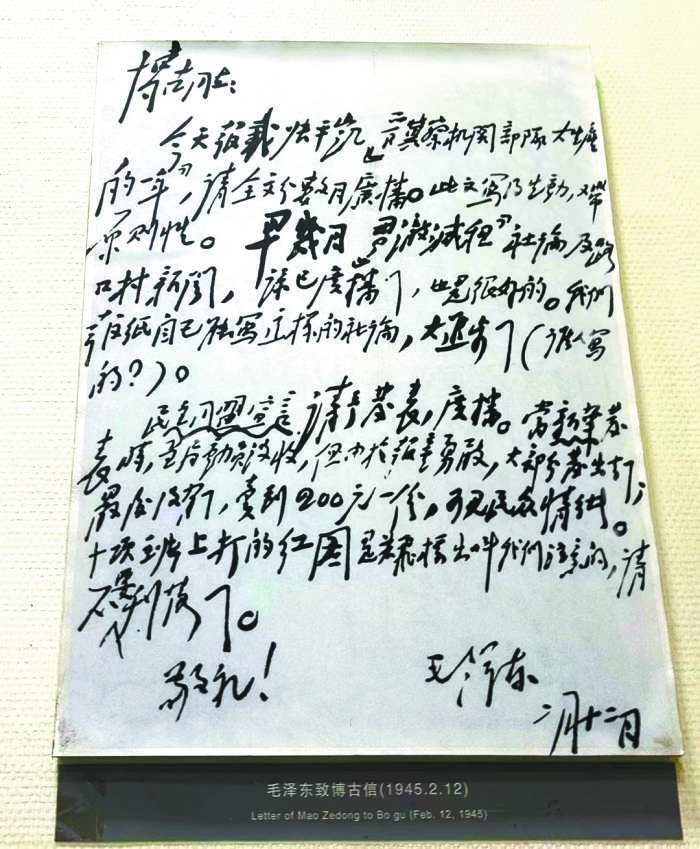 博古同志:
今天报载快平汎「冀察机关部队大生产
的一年」,请全文分数日广播。此文写得生动,又带
原则性。早几日「」减租」社论及路
口村新闻,谅已广播了,也是很好的。我们
报纸自己能写这样的社论,大进步了(谁人写
的?)。
民主同盟宣言,请予发表,广播。当新华发
表时,勒令没收,但由于报童勇敢,大部分发出了,
最后没有,卖到200元一份,可见民众情绪。
十项主张上打的红圈是为叫我们注意的,请
不要刊落了。
敬礼!
毛泽东
二月十二日
毛泽东致博古信(1945.2.12)
Letter of Mao Zedong to Bo gu (Feb. 12, 1945)